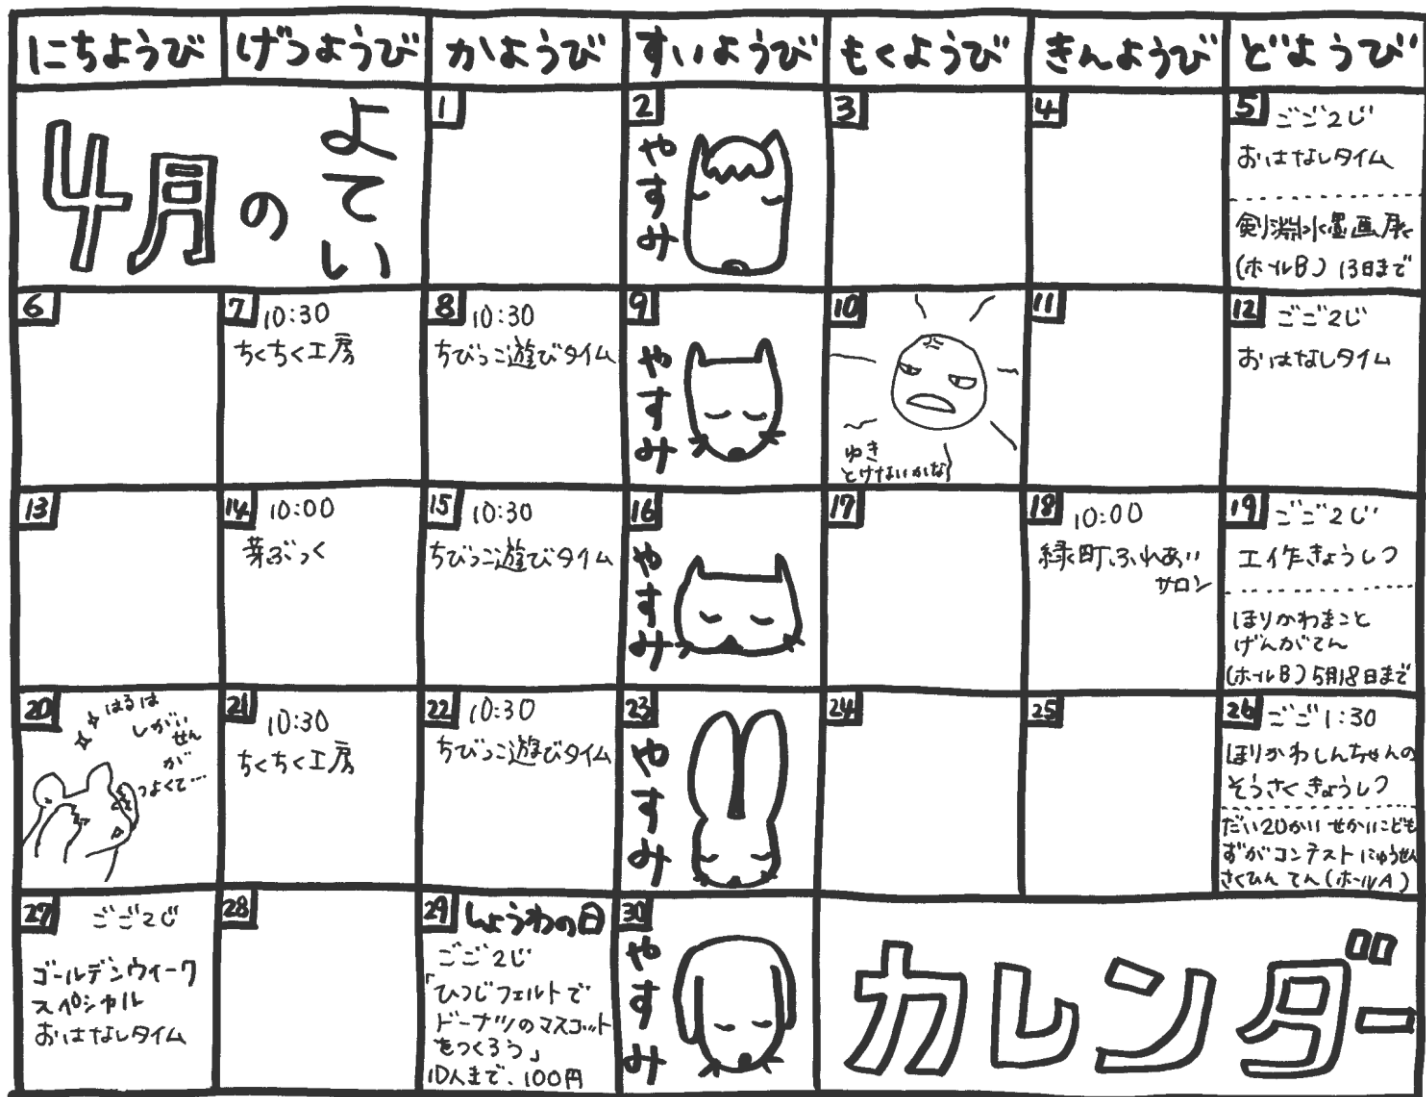 にちようび
げつようび
かようび
すいようび
もくようび
きんようび
どようび
4月の
よてい
1
2
やすみ
3
4
5 ごご2じ
おはなしタイム
剣淵水墨画展
(ホールB) 13日まで
6
7 10:30
ちくちく工房
8 10:30
ちびっこ遊びタイム
9
やすみ
10
ゆき
とけないかな
11
12 ごご2じ
おはなしタイム
13
14 10:00
芽ぶっく
15 10:30
ちびっこ遊びタイム
16
やすみ
17
18 10:00
緑町ふれあい
サロン
19 ごご2じ
工作きょうしつ
ほりかわまこと
げんがてん
(ホールB) 5月18日まで
20
はるは
しがい
せん
が
つよくて…
21
10:30
ちくちく工房
22 10:30
ちびっこ遊びタイム
23
やすみ
24
25
26 ごご1:30
ほりかわしんちゃんの
そうさくきょうしつ
だい20かい せかいこども
ずがコンテスト にゅうせん
さくひん てん (ホールA)
27 ごご2じ
ゴールデンウィーク
スペシャル
おはなしタイム
28
29 しょうわの日
ごご2じ
「ひつじフェルトで
ドーナツのマスコット
をつくろう」
10人まで、100円
30
やすみ
カレンダー